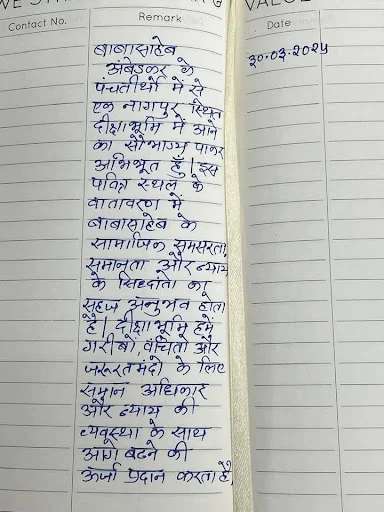 Contact No.
Remark
Date
बाबासाहेब
अंबेडकर के
पंचतीर्थों में से
एक नागपुर स्थित
दीक्षाभूमि में आने
का सौभाग्य पाकर
अभिभूत हूँ। इस
पवित्र स्थल के
वातावरण में
बाबासाहेब के
सामाजिक समरसता,
समानता और न्याय
के सिद्धांतों का
सहज अनुभव होता
है। दीक्षाभूमि हमें
गरीबों, वंचितों और
जरूरतमंदों के लिए
समान अधिकार
और न्याय की
व्यवस्था के साथ
आगे बढ़ने की
ऊर्जा प्रदान करता है,
३०.०३.२०२५